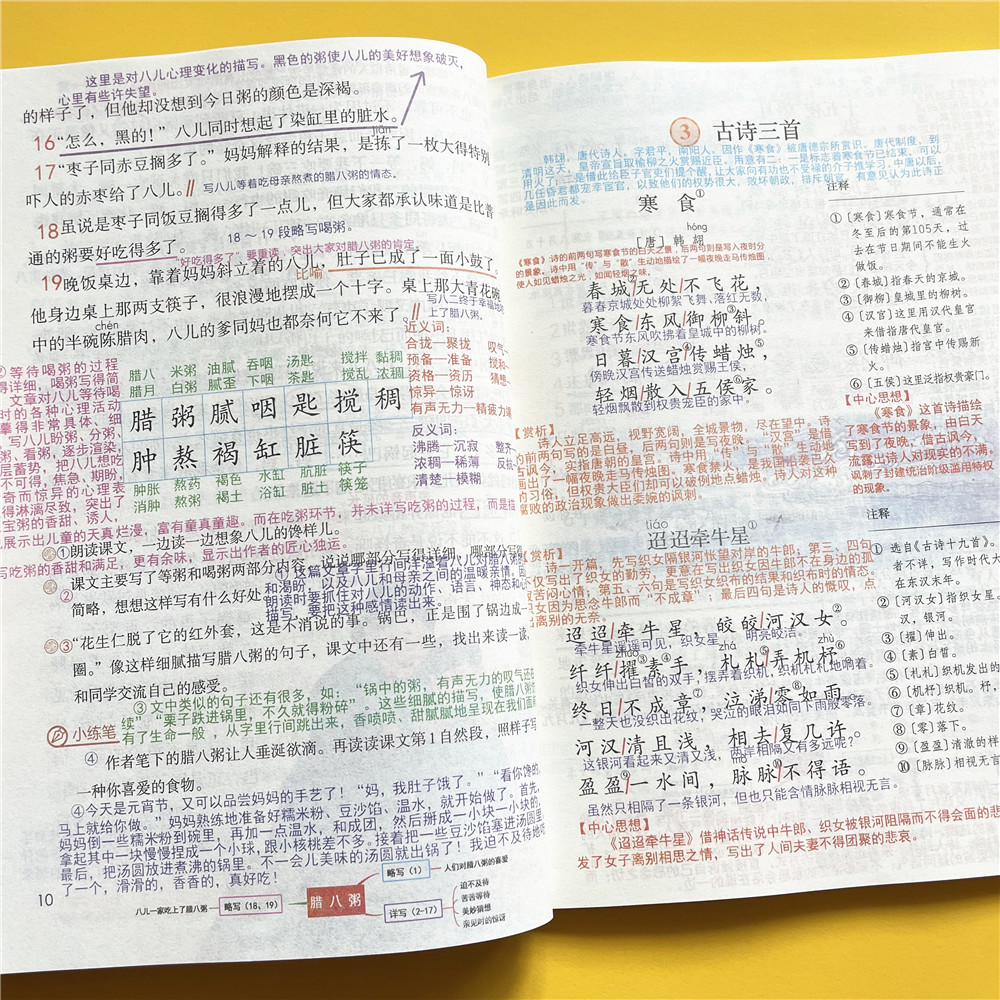 这里是对八儿心理变化的描写。黑色的粥使八儿的美好想象破灭，
心里有些许失望。
的样子了，但他却没想到今日粥的颜色是深褐。
16“怎么，黑的！”八儿同时想起了染缸里的脏水。
jiǎn
17“枣子同赤豆搁多了。”妈妈解释的结果，是拣了一枚大得特别
吓人的赤枣给了八儿。
写八儿等着吃母亲熬煮的腊八粥的情态。
18虽说是枣子同饭豆搁得多了一点儿，但大家都承认味道是比普
通的粥要好吃得多了。
18～19段略写喝粥。
“好吃得多了”要重读，突出大家对腊八粥的肯定。
19晚饭桌边，靠着妈妈斜立着的八儿，肚子已成了一面小鼓了。
比喻
他身边桌上那两支筷子，很浪漫地摆成一个十字。桌上那大青花碗
写八二终于幸福地吃
上了腊八粥。
chén
中的半碗陈腊肉，八儿的爹同妈也都奈何它不来了。
近义词：
合拢—聚拢
预备—准备
资格—资历
惊异—惊讶
有声无力—精疲力竭
反义词：
沸腾—沉寂
浓稠—稀薄
清楚—模糊
腊八 米粥 油腻 吞咽 汤匙 搅拌 黏稠
腊月 白粥 腻歪 下咽 茶匙 搅乱 浓稠
腊粥腻咽匙搅稠
肿熬褐缸脏筷
肿胀 熬药 褐色 水缸 肮脏 筷子
消肿 熬粥 褐土 浴缸 脏土 筷笼
①朗读课文，一边读一边想象八儿的馋样儿。
②
课文主要写了等粥和喝粥两部分内容，说说哪部分写得详细，哪部分写得
简略，想想这样写有什么好处。
①这篇文章字里行间洋溢着八儿对腊八粥的喜爱
和渴盼，以及八儿和母亲之间的温暖亲情，
朗读时要抓住对八儿的动作、语言、神态和心理
描写，要把这种感情读出来。
③“花生仁脱了它的红外套，这是不消说的事。锅巴，正是围了锅边成一
圈。”像这样细腻描写腊八粥的句子，课文中还有一些，找出来读一读，
和同学交流自己的感受。
③文中类似的句子还有很多，如：“锅中的粥，有声无力的叹气还在继
续”，“栗子跌进锅里，不久就得粉碎”。这些细腻的描写，使腊八粥
有了生命一般，从字里行间跳出来，香喷喷、甜腻腻地呈现在我们面前
小练笔
④ 作者笔下的腊八粥让人垂涎欲滴。再读读课文第1自然段，照样子写
一种你喜爱的食物。
④今天是元宵节，又可以品尝妈妈的手艺了！“妈，我肚子饿了。”“看你馋的，
马上就给你做。”妈妈熟练地准备好糯米粉、豆沙馅、温水，就开始做了。首先，
妈妈倒一些糯米粉到碗里，再加一点温水，和成团，然后掰成一小块一小块的，
拿起其中一块慢慢捏成一个小球，跟小核桃差不多。接着把一些豆沙馅塞进汤圆里，
最后，把汤圆放进煮沸的锅里。不一会儿美味的汤圆就出锅了！我迫不及待地吃
了一个，滑滑的，香香的，真好吃！
10
八儿一家吃上了腊八粥
略写（18、19）
腊八粥
略写（1）
人们对腊八粥的喜爱
详写（2-17）
迫不及待
苦苦等待
美妙猜想
亲见时的惊讶
3 古诗三首
韩翃，唐代诗人，字君平，南阳人，因作《寒食》被唐德宗所赏识。唐代制度，到
清明这天，皇帝宣旨取榆柳之火赏赐近臣。用意有二：一是标志着寒食节已结束，可以
用火了；二是借此给臣子官吏们提个醒，让大家向有功也不受禄的介子推学习。中唐以后，
几任昏君都宠幸宦官，以致他们的权势很大，败坏朝政，排斥朝官，有意见认为此诗正
是因此而发。
寒食①
hóng
[唐] 韩翃
《寒食》诗的前两句写寒食节的白天之景，后两句则是写入夜时分
的景象，诗中用“传”与“散”生动地描绘了一幅夜晚走马传烛图，
使人如见蜡烛之光，如闻轻烟之味。
春城②/无处/不飞花，
暮春京城处处柳絮飞舞、落红无数，
寒食/东风/御柳③斜。
寒食节东风吹拂着皇城中的柳树。
日暮/汉宫④/传蜡烛⑤，
傍晚汉宫传送蜡烛赏赐王侯，
轻烟/散入/五侯⑥家。
轻烟飘散到权贵宠臣的家中。
【赏析】
诗人立足高远，视野宽阔，全城景物，尽在望中。诗
的前两句写的是白昼，后两句则是写夜晚，“汉宫”是借
古讽今，实指唐朝的皇宫。诗中用“传”与“散”生动地
画出了一幅夜晚走马传烛图。寒食禁火，是我国沿袭已久
的习俗，但权贵大臣们却可以破例地点蜡烛。诗人对这种
腐败的政治现象做出委婉的讽刺。
注释
①〔寒食〕寒食节，通常在
冬至后的第105天，过
去在节日期间不能生火
做饭。
②〔春城〕指春天的京城。
③〔御柳〕皇城里的柳树。
④〔汉宫〕这里用汉代皇宫
来借指唐代皇宫。
⑤〔传蜡烛〕指宫中传赐新
⑥〔五侯〕这里泛指权贵豪门。
【中心思想】
《寒食》这首诗描绘
了寒食节的景象，由白天
写到了夜晚，借古讽今，
流露出诗人对现实的不满，
讽刺了封建统治阶级滥用特权
的现象。
tiáo
迢迢牵牛星①
【赏析】
诗一开篇，先写织女隔银河怅望对岸的牛郎；第三、四句
不仅写出了织女的勤劳，更意在写出织女因牛郎不在身边的孤
寂苦闷心情；第五、六句是写织女织布的结果和织布时的情态。
织女因为思念牛郎而“不成章”；最后四句是诗人的慨叹，点
出离别的无奈。
迢迢/牵牛星，皎皎/河汉女②。
牵牛星遥遥可见，织女星 明亮皎洁。
zhuó zhá zhù
纤纤/擢③素④手，札札⑤/弄机杼⑥。
织女伸出白皙的双手，摆弄着织机，织机札札地响着。
终日/不成章⑦，泣涕/零⑧如雨。
一整天也没织出花纹，哭泣的眼泪如同下雨般零落。
河汉/清且浅，相去/复几许。
这银河看起来又清又浅，两岸相隔又有多远呢？
mò
盈盈⑨/一水间，脉脉⑩/不得语。
虽然只相隔了一条银河，但也只能含情脉脉相视无言。
【中心思想】
《迢迢牵牛星》借神话传说中牛郎、织女被银河阻隔而不得会面的悲
发了女子离别相思之情，写出了人间夫妻不得团聚的悲哀。
注释
① 选自《古诗十九首》。
者不详，写作时代大
在东汉末年。
②〔河汉女〕指织女星。
汉，银河。
③〔擢〕伸出。
④〔素〕白皙。
⑤〔札札〕织机发出的
⑥〔机杼〕织机。杼，
⑦〔章〕花纹。
⑧〔零〕落下。
⑨〔盈盈〕清澈的样
⑩〔脉脉〕相视无言